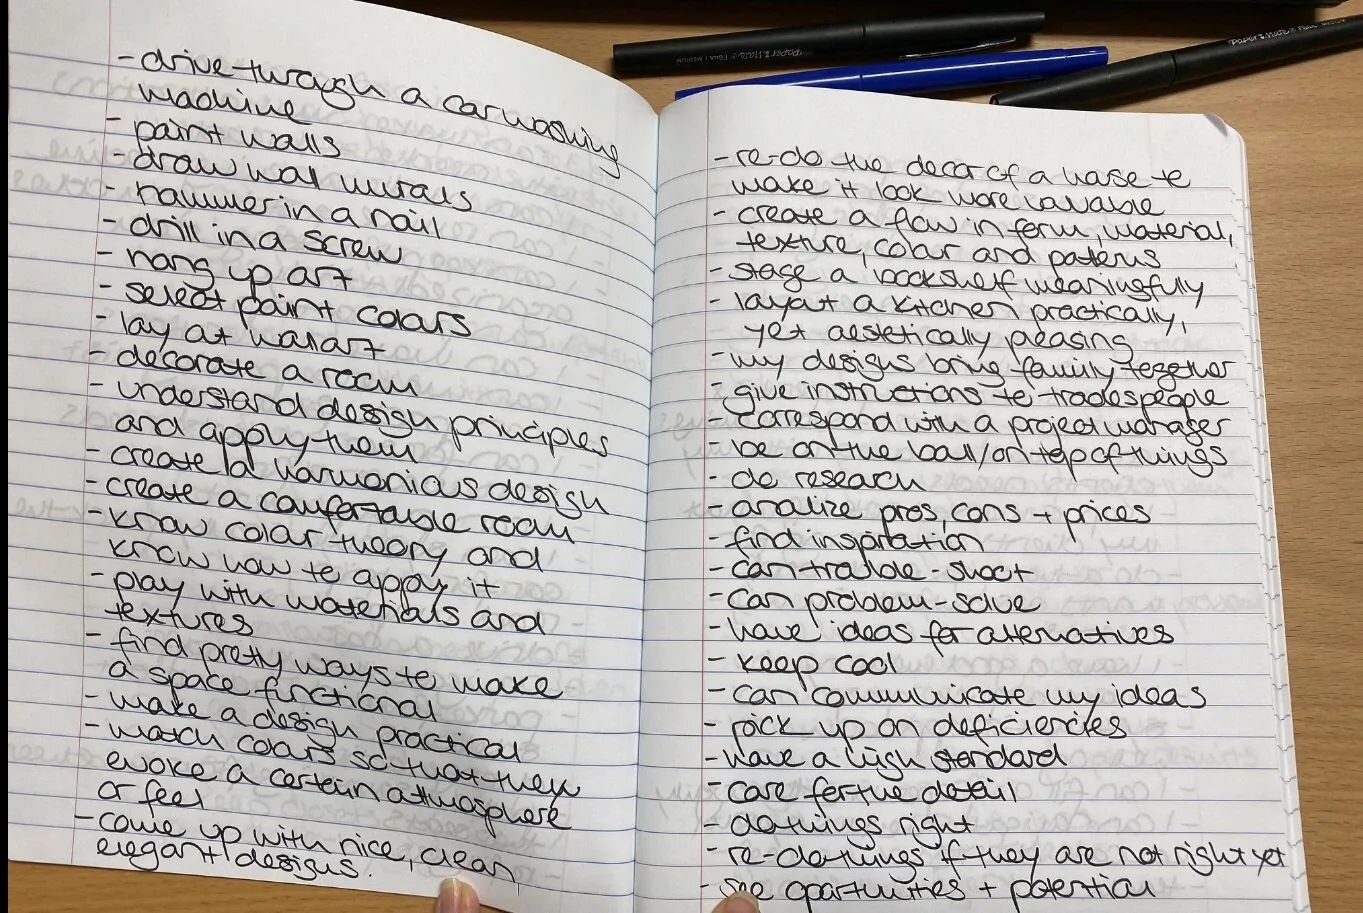 - drive through a car washing
machine
- paint walls
- draw wall murals
- hammer in a nail
- drill in a screw
- hang up art
- select paint colors
- lay out wall art
- decorate a room
- understand design principles
and apply them
- create a harmonious design
- create a comfortable room
- know color theory and
know how to apply it
- play with materials and
textures
- find pretty ways to make
a space functional
- make a design practical
- match colors so that they
evoke a certain atmosphere
or feel
- come up with nice, clean,
elegant designs.
- re-do the decor of a house to
make it look more lavable
- create a flow in form, material,
texture, color and patterns
- stage a bookshelf meaningfully
- layout a kitchen practically,
yet aestetically pleasing
- my designs bring family together
- give instructions to tradespeople
- correspond with a project manager
- be on the ball/on top of things
- do research
- analize pros, cons + prices
- find inspiration
- can trouble-shoot
- can problem-solve
- have ideas for alternatives
- keep cool
- can communicate my ideas
- pick up on deficiencies
- have a high standard
- care for the detail
- do things right
- re-do things if they are not right yet
- see oportunities + potential
PAPER:MATE
Flair
MEDIUM
PAPER:MATE